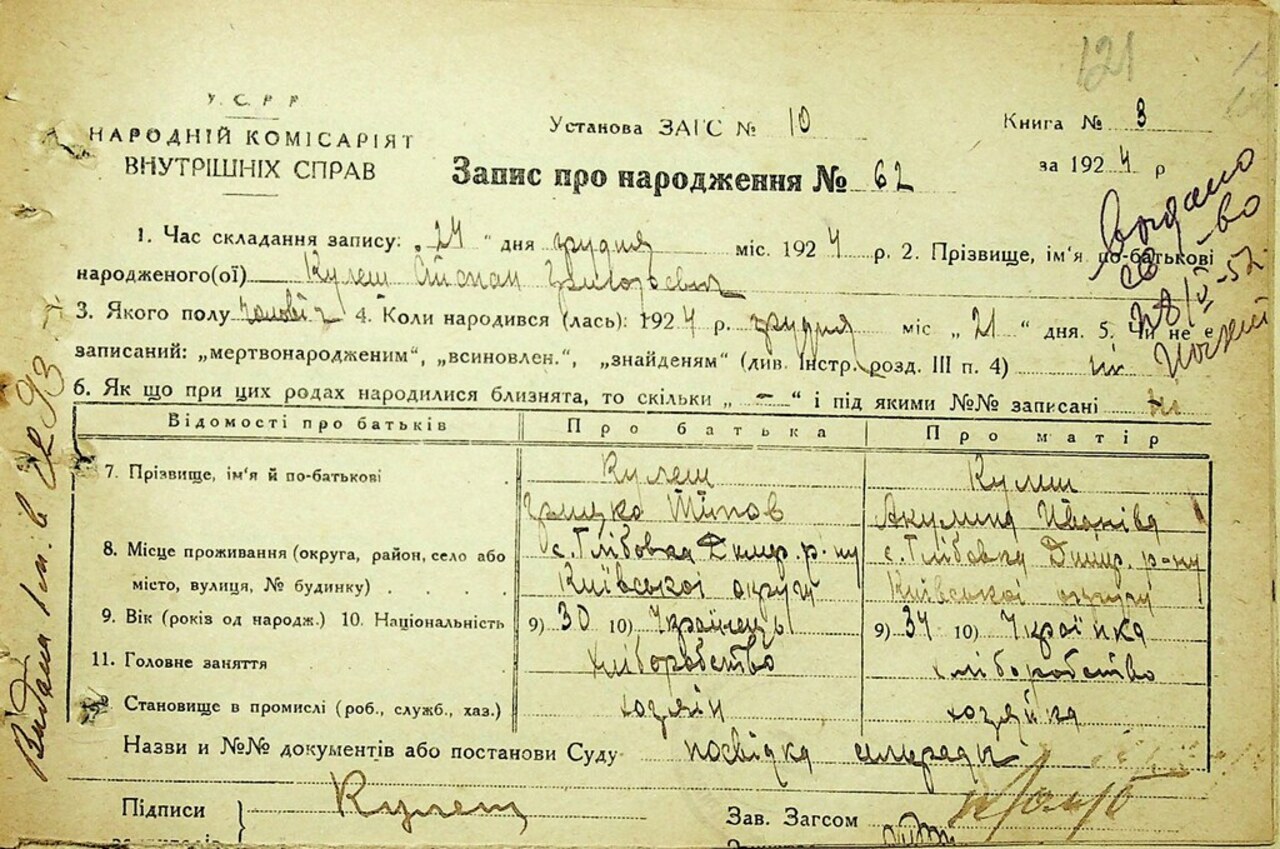 121
У.С.Р.Р
НАРОДНІЙ КОМІСАРІЯТ
ВНУТРІШНІХ СПРАВ
Установа ЗАГС № 10
Книга № 3
за 1924 р
Запис про народження № 62
1. Час складання запису: „24“ дня грудня міс. 1924 р. 2. Прізвище, ім'я по-батькові
народженого(ої) Кулеш Григорьевич
3. Якого полу 4. Коли народився (лась): 1924 р. грудня міс „21“ дня. 5. Чи не є
записаний: „мертвонародженим“, „всиновлен.“, „знайденям“ (див. Інстр. розд. III п. 4) ні
6. Як що при цих родах народилися близнята, то скільки „ – “ і під якими №№ записані
Відомості про батьків Про батька Про матір
7. Прізвище, ім'я й по-батькові Кулеш Кулеш
Грицко Акулина Иванівa
8. Місце проживання (округа, район, село або с. Глібовка Димер. р-ну с. Глібовка Димер. р-ну
місто, вулиця, № будинку) . . . . Київської округи Київської округи
9. Вік (років од народж.) 10. Національність 9) 30 10) Українець 9) 34 10) Українка
11. Головне заняття хліборобство хліборобство
Становище в промислі (роб., служб., хаз.) хозяін хозяйка
Назви и №№ документів або постанови Суду посвідка
Підписи Кулеш
Зав. Загсом
видано
св-во
28/IV-52